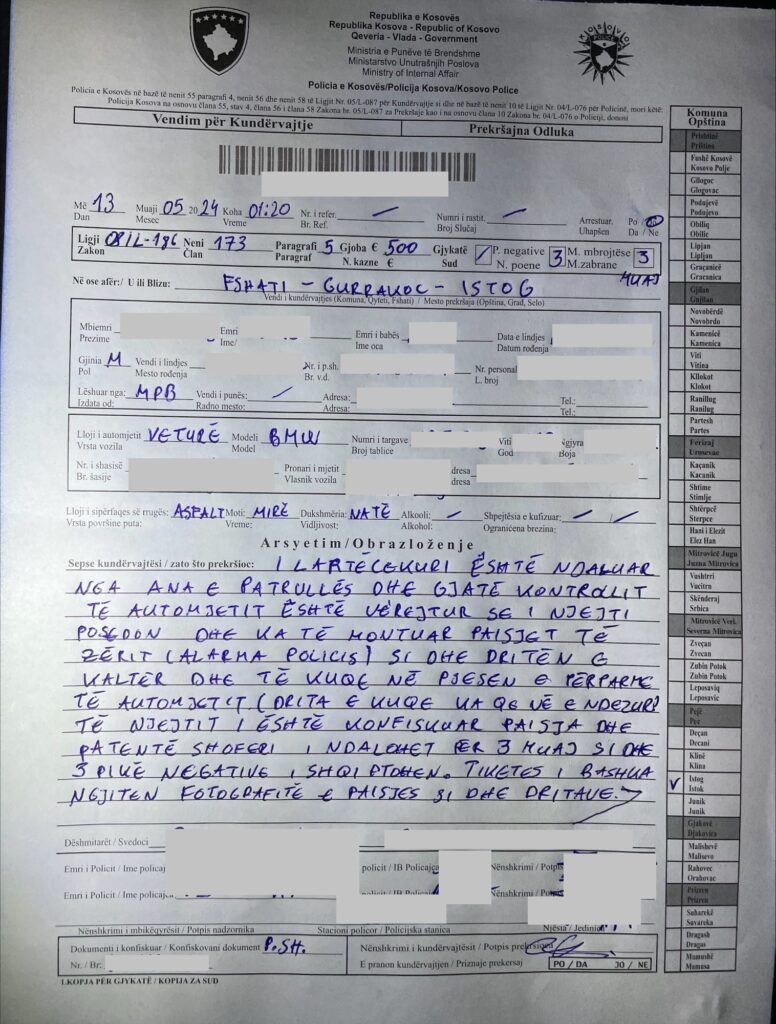 Republika e Kosovës
Republika Kosova - Republic of Kosovo
Qeveria - Vlada - Government
KOSOVO
POLICE
Ministria e Punëve të Brendshme
Ministarstvo Unutrašnjih Poslova
Ministry of Internal Affair
Policia e Kosovës/Policija Kosova/Kosovo Police
Policia e Kosovës në bazë të nenit 55 paragrafi 4, nenit 56 dhe nenit 58 të Ligjit Nr. 05/L-087 për Kundërvajtje si dhe në bazë të nenit 10 të Ligjit Nr. 04/L-076 për Policinë, mori këtë:
Policija Kosova na osnovu člana 55, stav 4, člana 56 i člana 58 Zakona br. 05/L-087 za Prekršaje kao i na osnovu člana 10 Zakona br. 04/L-076 o Policiji, donosi
Vendim për Kundërvajtje Prekršajna Odluka
Më 13 Muaji 05 2024 Koha 01:20 Nr. i refer. Numri i rastit. Arrestuar. Po / Jo
Dan Mesec Vreme Br. Ref. Broj Slučaj Uhapšen Da / Ne
Ligji 08/L-186 Neni 173 Paragrafi 5 Gjoba € 500 Gjykatë P. negative 3 M. mbrojtëse 3
Zakon Član Paragraf N. kazne € Sud N. poene M.zabrane MUAJ
Në ose afër:/ U ili Blizu: FSHATI - GURRAKOC - ISTOG
Vendi i kundërvajtjes (Komuna, Qyteti, Fshati) / Mesto prekršaja (Opština, Grad, Selo)
Mbiemri Emri Emri i babës Data e lindjes
Prezime Ime/ Ime oca Datum rođenja
Gjinia M Vendi i lindjes Nr. i p.sh. Nr. personal
Pol Mesto rođenja Br. v.d. L. broj
Lëshuar nga: MPB Vendi i punës: Adresa: Tel.:
Izdata od: Radno mesto: Adresa: Tel.:
Lloji i automjetit VETURË Modeli BMW Numri i targave Viti
Vrsta vozila Model Broj tablice God Boja
Nr. i shasisë Pronari i mjetit dresa
Br. šasije Vlasnik vozila adresa
Lloji i sipërfaqes së rrugës: ASFALT Moti: MIRË Dukshmëria: NATË Alkooli: Shpejtësia e kufizuar:
Vrsta površine puta: Vreme: Vidljivost: Alkohol: Ograničena brezina:
Arsyetim/Obrazloženje
Sepse kundërvajtësi / zato što prekršioc: I LARTËCEKURI ËSHTË NDALUAR
NGA ANA E PATRULLËS DHE GJATË KONTROLLIT
TË AUTOMJETIT ËSHTË VËREJTUR SE I NJEJTI
POSEDON DHE KA TË MONTUAR PAISJET TË
ZËRIT (ALARMA POLICIS) SI DHE DRITËN E
KALTËR DHE TË KUQE NË PJESEN E PËRPARME
TË AUTOMJETIT (DRITA E KUQE KA QENË E NDEZUR)
TË NJEJTIT I ËSHTË KONFISKUAR PAISJA DHE
PATENTË SHOFERI I NDALOHET PËR 3 MUAJ SI DHE
3 PIKË NEGATIVE I SHQIPTOHEN. TIKETES I BASHKA
NGJITEN FOTOGRAFITË E PAISJES SI DHE DRITAVE.
Dëshmitarët / Svedoci
Emri i Policit / Ime policaj policit / IB Policajca Nënshkrimi / Potpis
Emri i Policit / Ime policajca policit / IB Policajca Nënshkrimi / Potpis
Nënshkrimi i mbikëqyrësit / Potpis nadzornika Stacioni policor / Policijska stanica Njësia / Jedinica
Dokumenti i konfiskuar / Konfiskovani dokument P.SH. Nënshkrimi i kundërvajtësit / Potpis prekršioca
Nr. / Br: E pranon kundërvajtjen / Priznaje prekersaj PO / DA JO / NE
1.KOPJA PËR GJYKATË / KOPIJA ZA SUD
Komuna
Opština
Prishtinë
Priština
Fushë Kosovë
Kosovo Polje
Gllogoc
Glogovac
Podujevë
Podujevo
Obiliq
Obilic
Lipjan
Lipljan
Graçanicë
Gracanica
Gjilan
Gnjilane
Novobërdë
Novobrdo
Kamenicë
Kamenica
Viti
Vitina
Kllokot
Klokot
Ranillug
Ranilug
Partesh
Partes
Ferizaj
Urosevac
Kaçanik
Kacanik
Shtime
Stimlje
Shtërpcë
Sterpce
Hani i Elezit
Elez Han
Mitrovicë Jugu
Juzna Mitrovica
Vushtrri
Vucitrn
Skënderaj
Srbica
Mitrovicë Veri.
Severna Mitrovica
Zveçan
Zvecan
Zubin Potok
Zubin Potok
Leposaviq
Leposavic
Pejë
Pec
Deçan
Decani
Klinë
Klina
Istog
Istok
Junik
Junik
Gjakovë
Djakovica
Malishevë
Malisevo
Rahovec
Orahovac
Prizren
Prizren
Suharekë
Suvareka
Dragash
Dragas
Mamushë
Mamusa